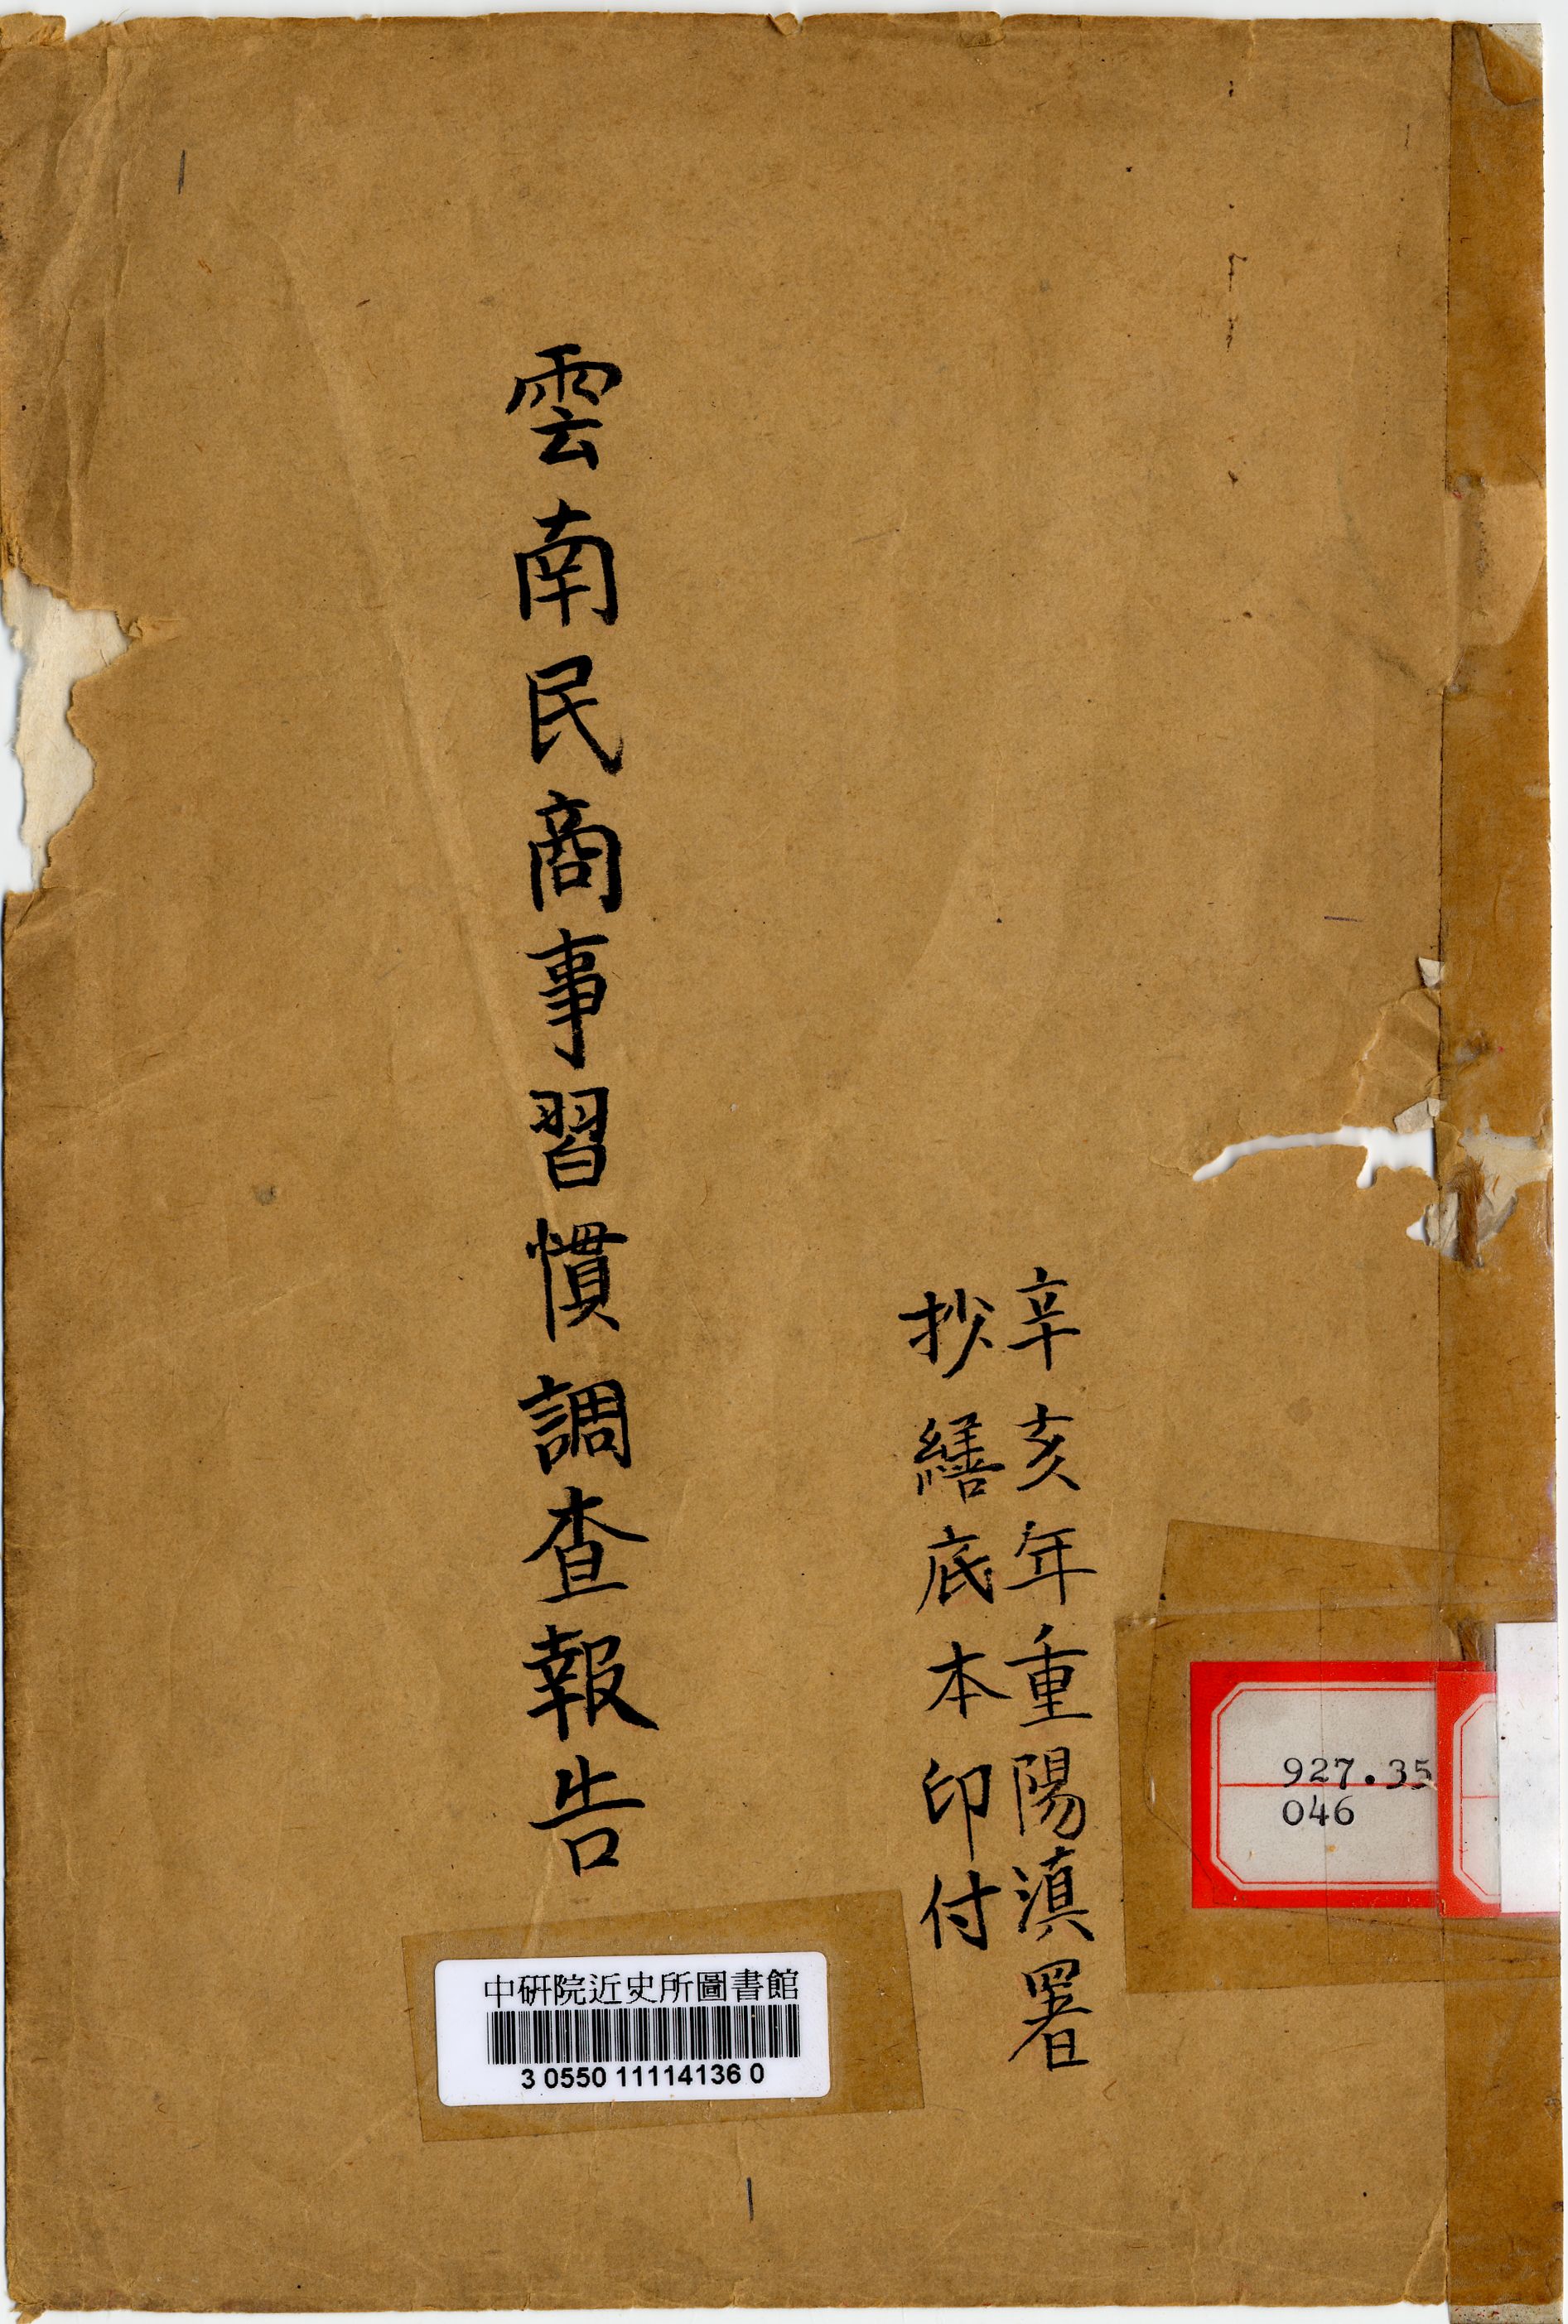 辛亥年重陽滇署
抄繕底本印付
雲南民商事習慣調查報告
927.35
046
中研院近史所圖書館
3 0550 11114136 0